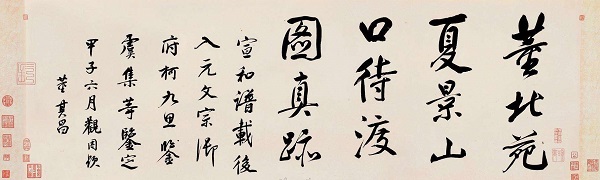 董北苑
夏景山
口待渡
圖真跡
宣和譜載後
入元文宗御
府柯九思
虞集等鑒定
甲子六月觀因題
董其昌